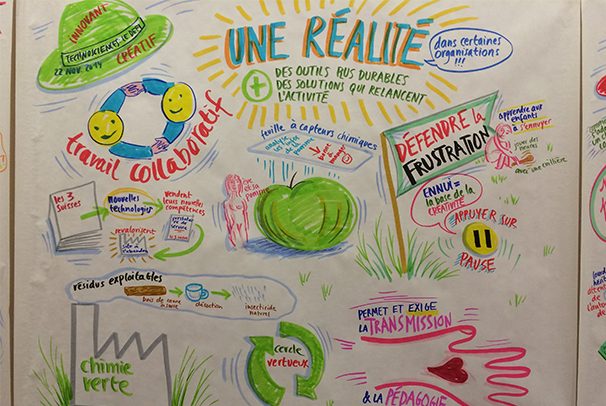 INNOVANT
TECHNOSCIENCES LE DÉFI
22 NOV. 2014
CRÉATIF
UNE RÉALITÉ
dans certaines
organisations
!!!
+
DES OUTILS PLUS DURABLES
DES SOLUTIONS QUI RELANCENT
L'ACTIVITÉ
travail collaboratif
feuille à capteurs chimiques
analyse
les infos
de la
pomme
DÉFENDRE LA
FRUSTRATION
apprendre aux
enfants
à s'ennuyer
jouer des
heures
avec une cuillère
ENNUI =
la base de la
CRÉATIVITÉ
APPUYER SUR
PAUSE
les 3
suisses
nouvelles
technologies
vendent
leurs nouvelles
compétences
revalorisent
résidus exploitables
décoction
insecticide
naturel
chimie
verte
cercle
vertueux
PERMET ET EXIGE
LA TRANSMISSION
& LA PÉDAGOGIE